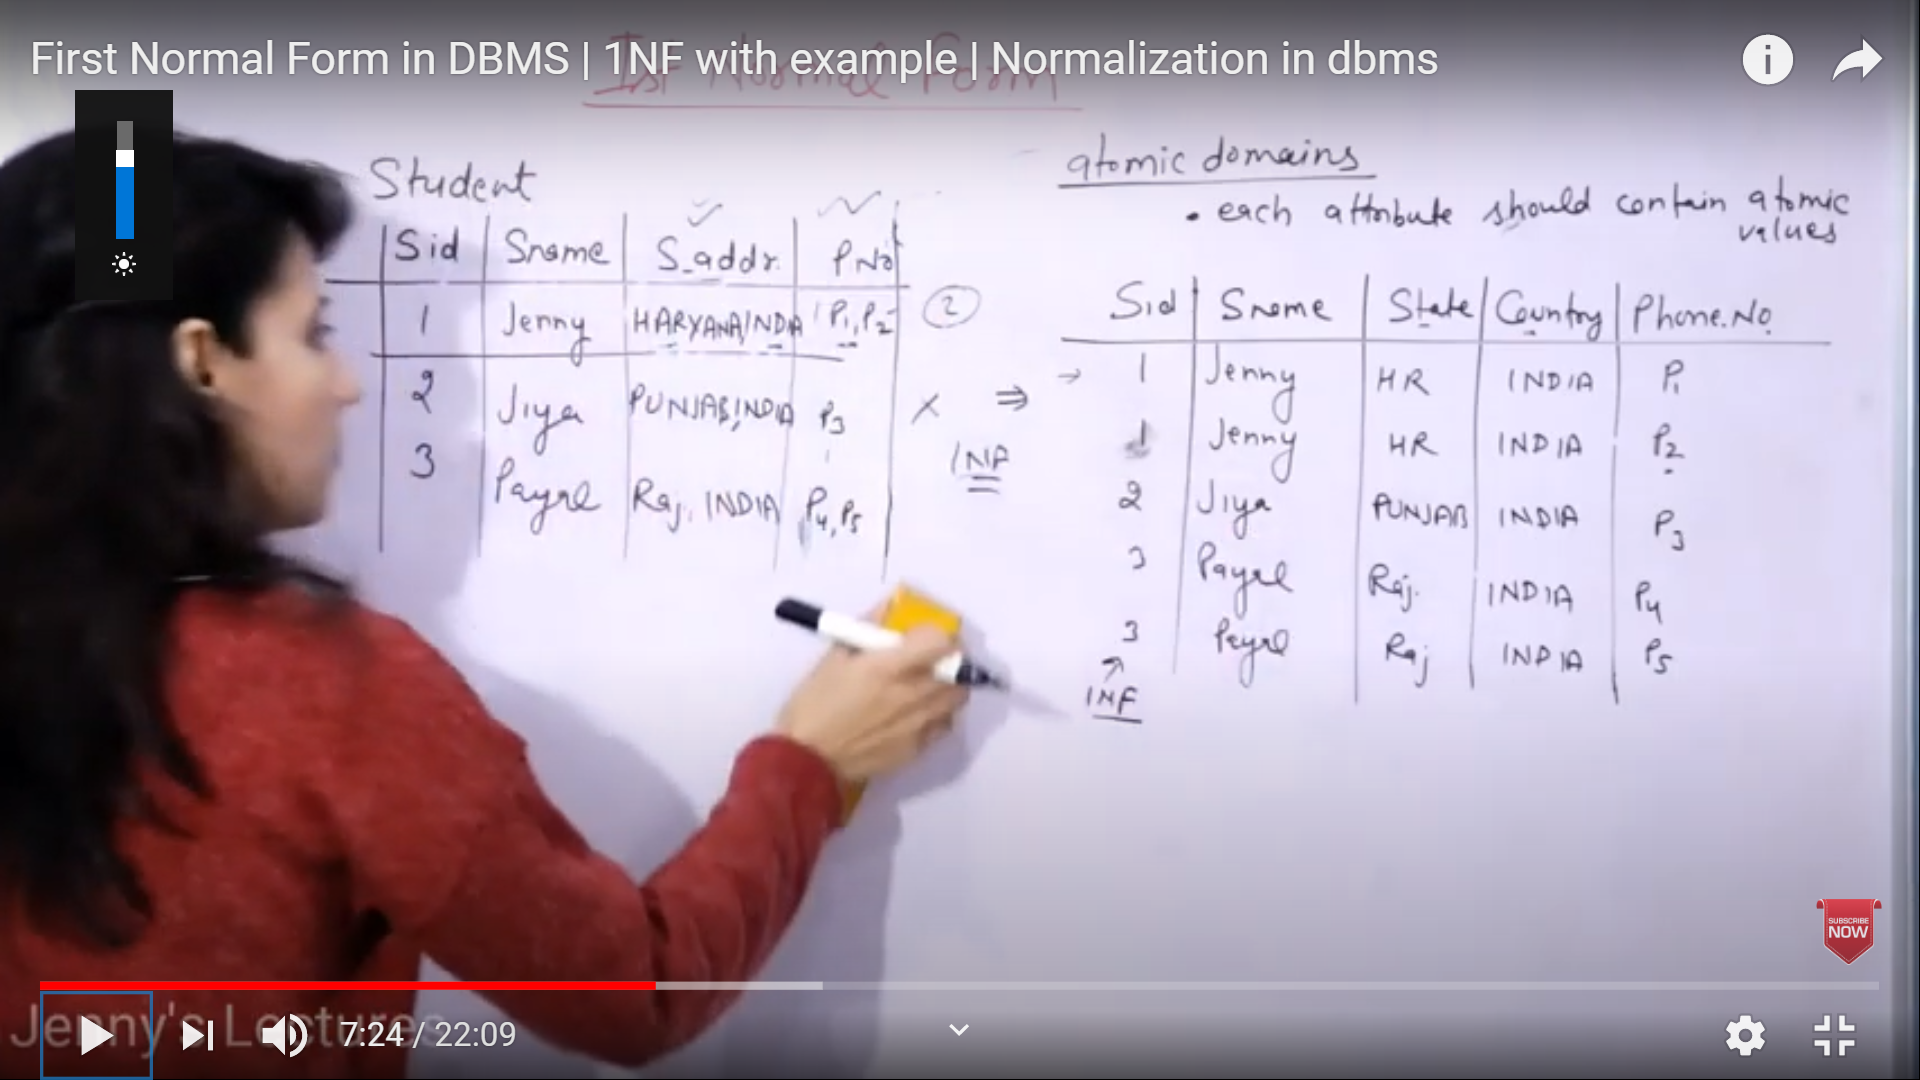 First Normal Form in DBMS | 1NF with example | Normalization in dbms
Ist Normal Form
Student
Sid Sname S_addr. P No
1 Jenny HARYANA, INDIA P1, P2
2 Jiya PUNJAB, INDIA P3
3 Payal Raj. INDIA P4, P5
2
X ⇒
1NF
atomic domains
• each attribute should contain atomic
values
Sid Sname State Country Phone.No
→ 1 Jenny HR INDIA P1
1 Jenny HR INDIA P2
2 Jiya PUNJAB INDIA P3
3 Payal Raj. INDIA P4
3 Payal Raj INDIA P5
1NF
SUBSCRIBE
NOW
Jenny's Lectures
7:24 / 22:09